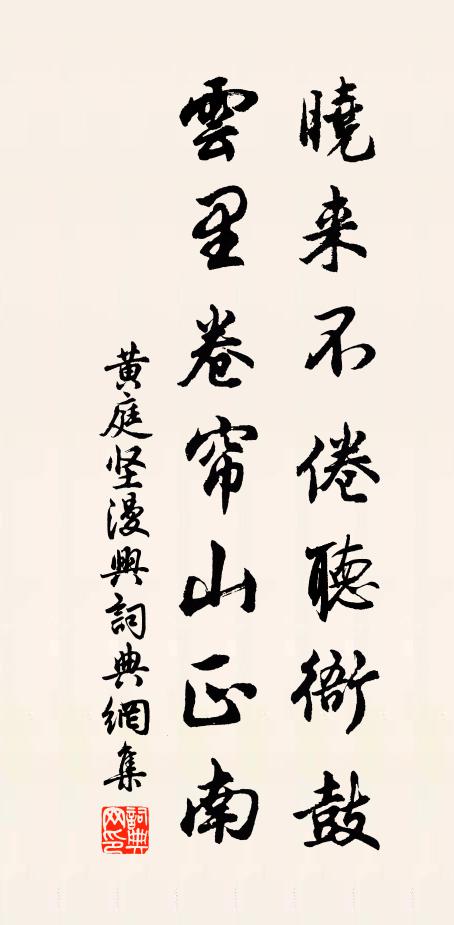 曉来不倦聽衙鼓
雲里卷帘山正南
黄庭坚漫興詞典網集
詞典網印